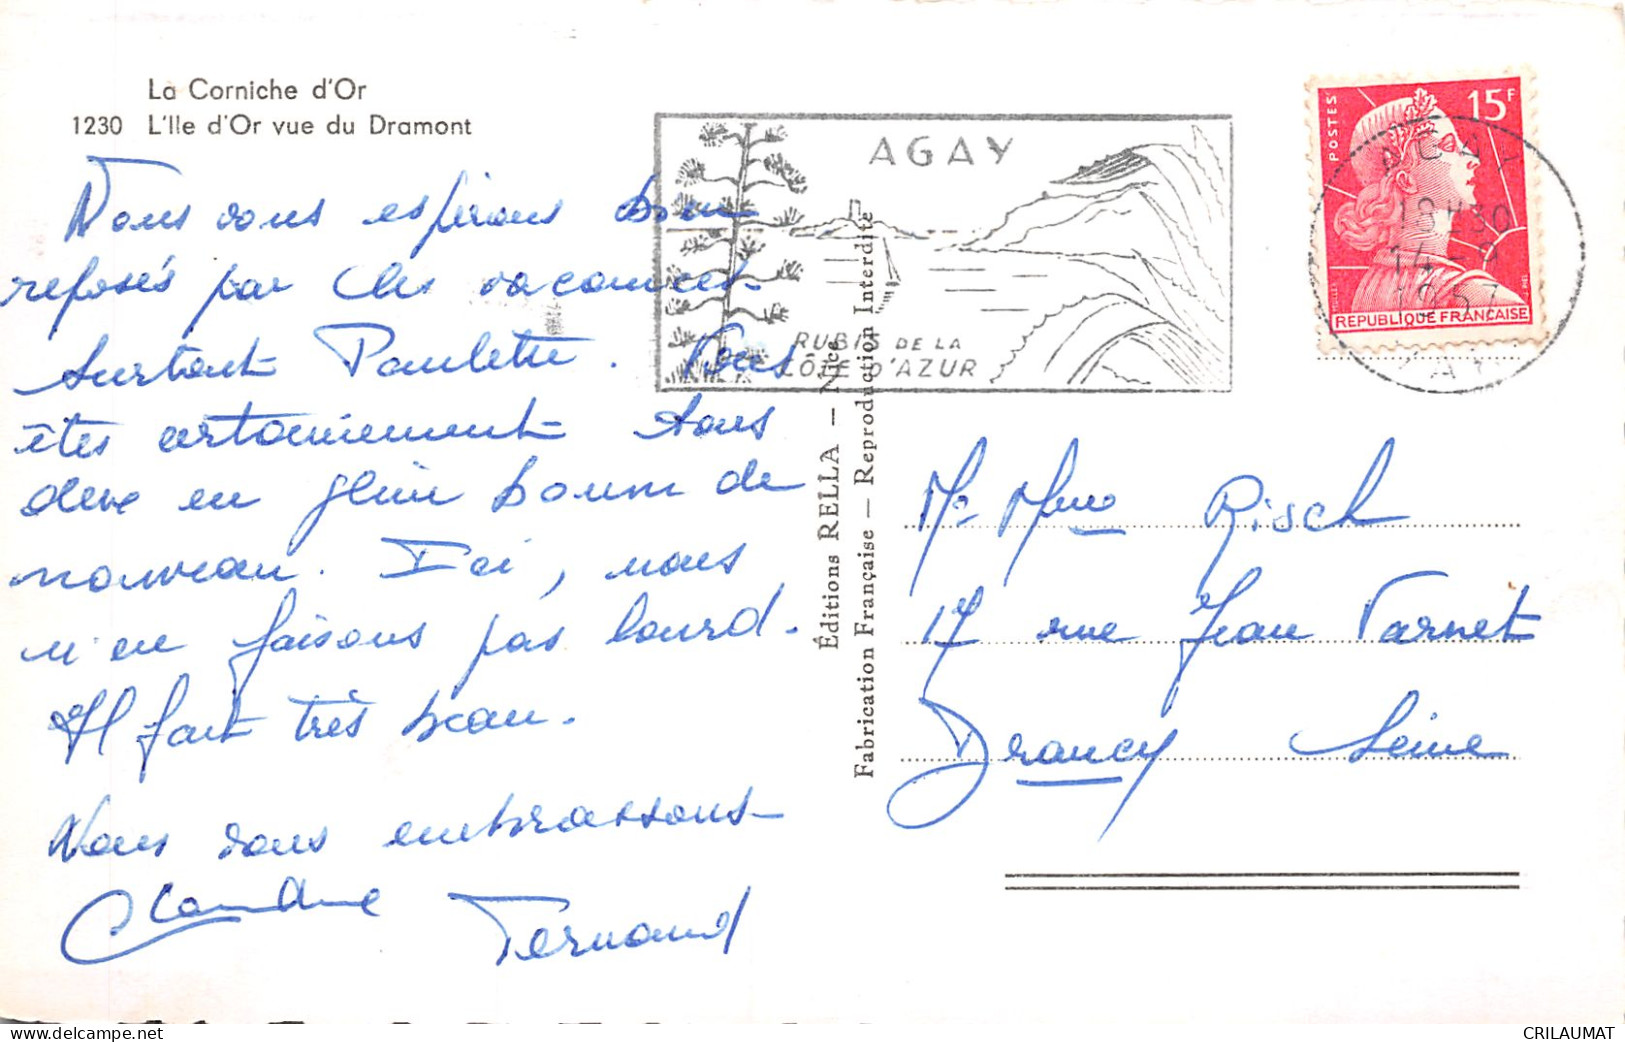 La Corniche d'Or
1230 L'Ile d'Or vue du Dramont
Nous vous espérons bien
reposés par les vacances
surtout Paulette. Vous
êtes certainement tous
deux en plein boum de
nouveau. Ici, nous
n'en faisons pas lourd.
Il fait très beau.
Nous vous embrassons
Claudine Fernand
AGAY
RUBIS DE LA
CÔTE D'AZUR
Éditions RELLA — Nice
Fabrication Française — Reproduction Interdite
POSTES
15F
REPUBLIQUE FRANÇAISE
MULLER
18H30
14-9
1957
Mr Mme Risch
17 rue Jean Varnet
Drancy Seine
delcampe.net
CRILAUMAT